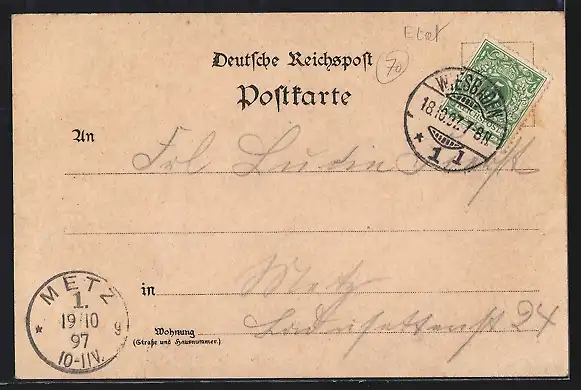 Etat
70
Deutsche Reichspost
Postkarte
WIESBADEN
18.10.97. 7-8N.
* 1 1
An Frl.
in Metz
Wohnung 24
(Straße und Hausnummer.)
METZ
1.
19/10
97
10-11V.
* g